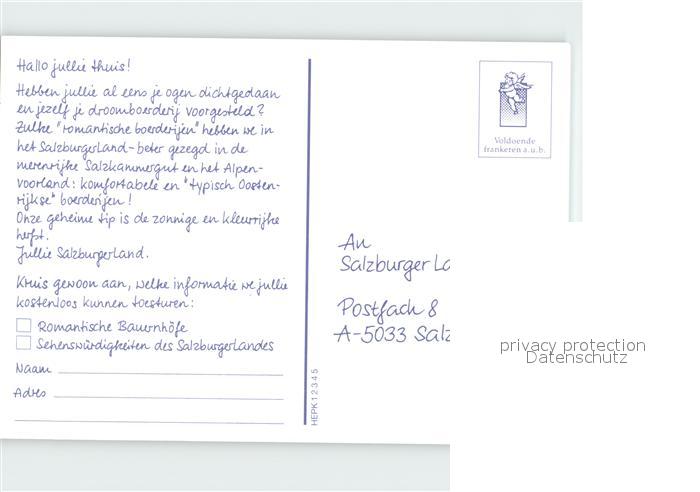 Hallo jullie thuis!
Hebben jullie al eens je ogen dichtgedaan
en jezelf je droomboerderij voorgesteld?
Zulke "romantische boerderijen" hebben we in
het SalzburgerLand - beter gezegd in de
merenrijke Salzkammergut en het Alpen-
voorland: komfortabele en "typisch Oosten-
rijkse" boerderijen!
Onze geheime tip is de zonnige en kleurrijke
herfst.
Jullie SalzburgerLand.
Kruis gewoon aan, welke informatie we jullie
kostenloos kunnen toesturen:
Romantische Bauernhöfe
Sehenswürdigkeiten des SalzburgerLandes
Naam
Adres
HEPK 1 2 3 4 5
Voldoende
frankeren a.u.b.
An
Salzburger La
Postfach 8
A-5033 Salz
privacy protection
Datenschutz